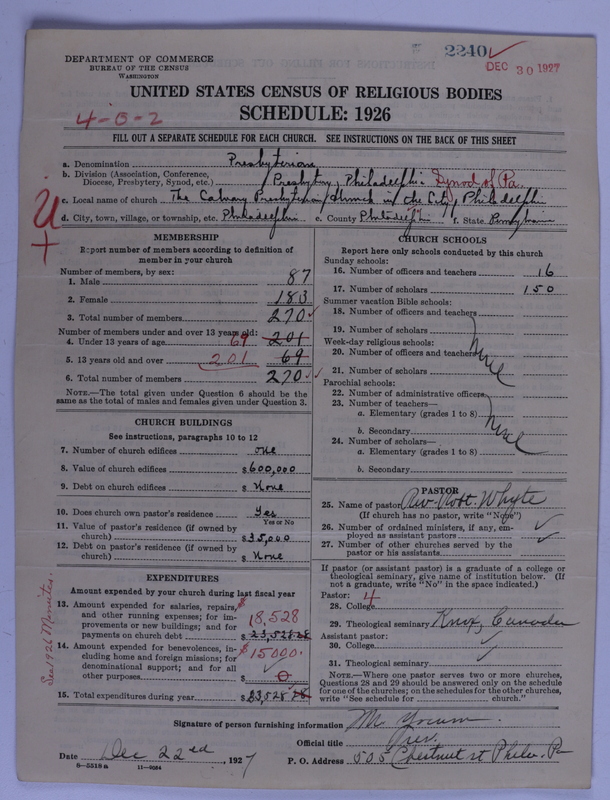 2240 ✓
DEC 30 1927
DEPARTMENT OF COMMERCE
BUREAU OF THE CENSUS
WASHINGTON
UNITED STATES CENSUS OF RELIGIOUS BODIES
SCHEDULE: 1926
4-0-2
FILL OUT A SEPARATE SCHEDULE FOR EACH CHURCH. SEE INSTRUCTIONS ON THE BACK OF THIS SHEET
a. Denomination Presbyterian
b. Division (Association, Conference,
Diocese, Presbytery, Synod, etc.) Presbytery, Philadelphia Synod of Pa.
c. Local name of church The Calvary Presbyterian Church in the City, Philadelphia
d. City, town, village, or township, etc. Philadelphia e. County Philadelphia f. State Pennsylvania
MEMBERSHIP
Report number of members according to definition of
member in your church
Number of members, by sex:
1. Male 87
2. Female 183
3. Total number of members 270 ✓
Number of members under and over 13 years old:
4. Under 13 years of age 69 201
5. 13 years old and over 201 69
6. Total number of members 270 ✓✓
NOTE.—The total given under Question 6 should be
same as the total of males and females given under Question 3.
CHURCH BUILDINGS
See instructions, paragraphs 10 to 12
7. Number of church edifices one
8. Value of church edifices $600,000
9. Debt on church edifices $ None
10. Does church own pastor's residence Yes
Yes or No
11. Value of pastor's residence (if owned by
church) $35,000
12. Debt on pastor's residence (if owned by
church) $ None
EXPENDITURES
Amount expended by church during last fiscal year
13. Amount expended for salaries, repairs,
and other running expenses; for im-
provements or new buildings; and for
payments on church debt $18,528 $23,528 28
14. Amount expended for benevolences, in-
cluding home and foreign missions; for
denominational support; and for all
other purposes $15000. $ 0
15. Total expenditures during year $23,528 28
See 1926 Minutes.
CHURCH SCHOOLS
Report here only schools conducted by this church
Sunday schools:
16. Number of officers and teachers 16
17. Number of scholars 150
Summer vacation Bible schools:
18. Number of officers and teachers
19. Number of scholars
Week-day religious schools:
20. Number of officers and teachers None
21. Number of scholars
Parochial schools:
22. Number of administrative officers
23. Number of teachers—
a. Elementary (grades 1 to 8) None
b. Secondary
24. Number of scholars—
a. Elementary (grades 1 to 8)
b. Secondary
PASTOR
25. Name of pastor Rev. Robt. Whyte
(If church has no pastor, write "None")
26. Number of ordained ministers, if any, em-
ployed as assistant pastors ✓
27. Number of other churches served by the
pastor or his assistants ✓
If pastor (or assistant pastor) is a graduate of a college or
theological seminary, give name of institution below. (If
not a graduate, write "No" in the space indicated.)
Pastor: 4
28. College
29. Theological seminary Knox, Canada
Assistant pastor:
30. College ✓
31. Theological seminary
NOTE.—Where one pastor serves two or more churches,
Questions 28 and 29 should be answered only on the schedule
for one of the churches; on the schedules for the other churches,
write "See schedule for church."
Signature of person furnishing information
Official title
Date Dec 22nd, 1927 P. O. Address 505 Chestnut st Phila. Pa
8—5518 a 11—9084